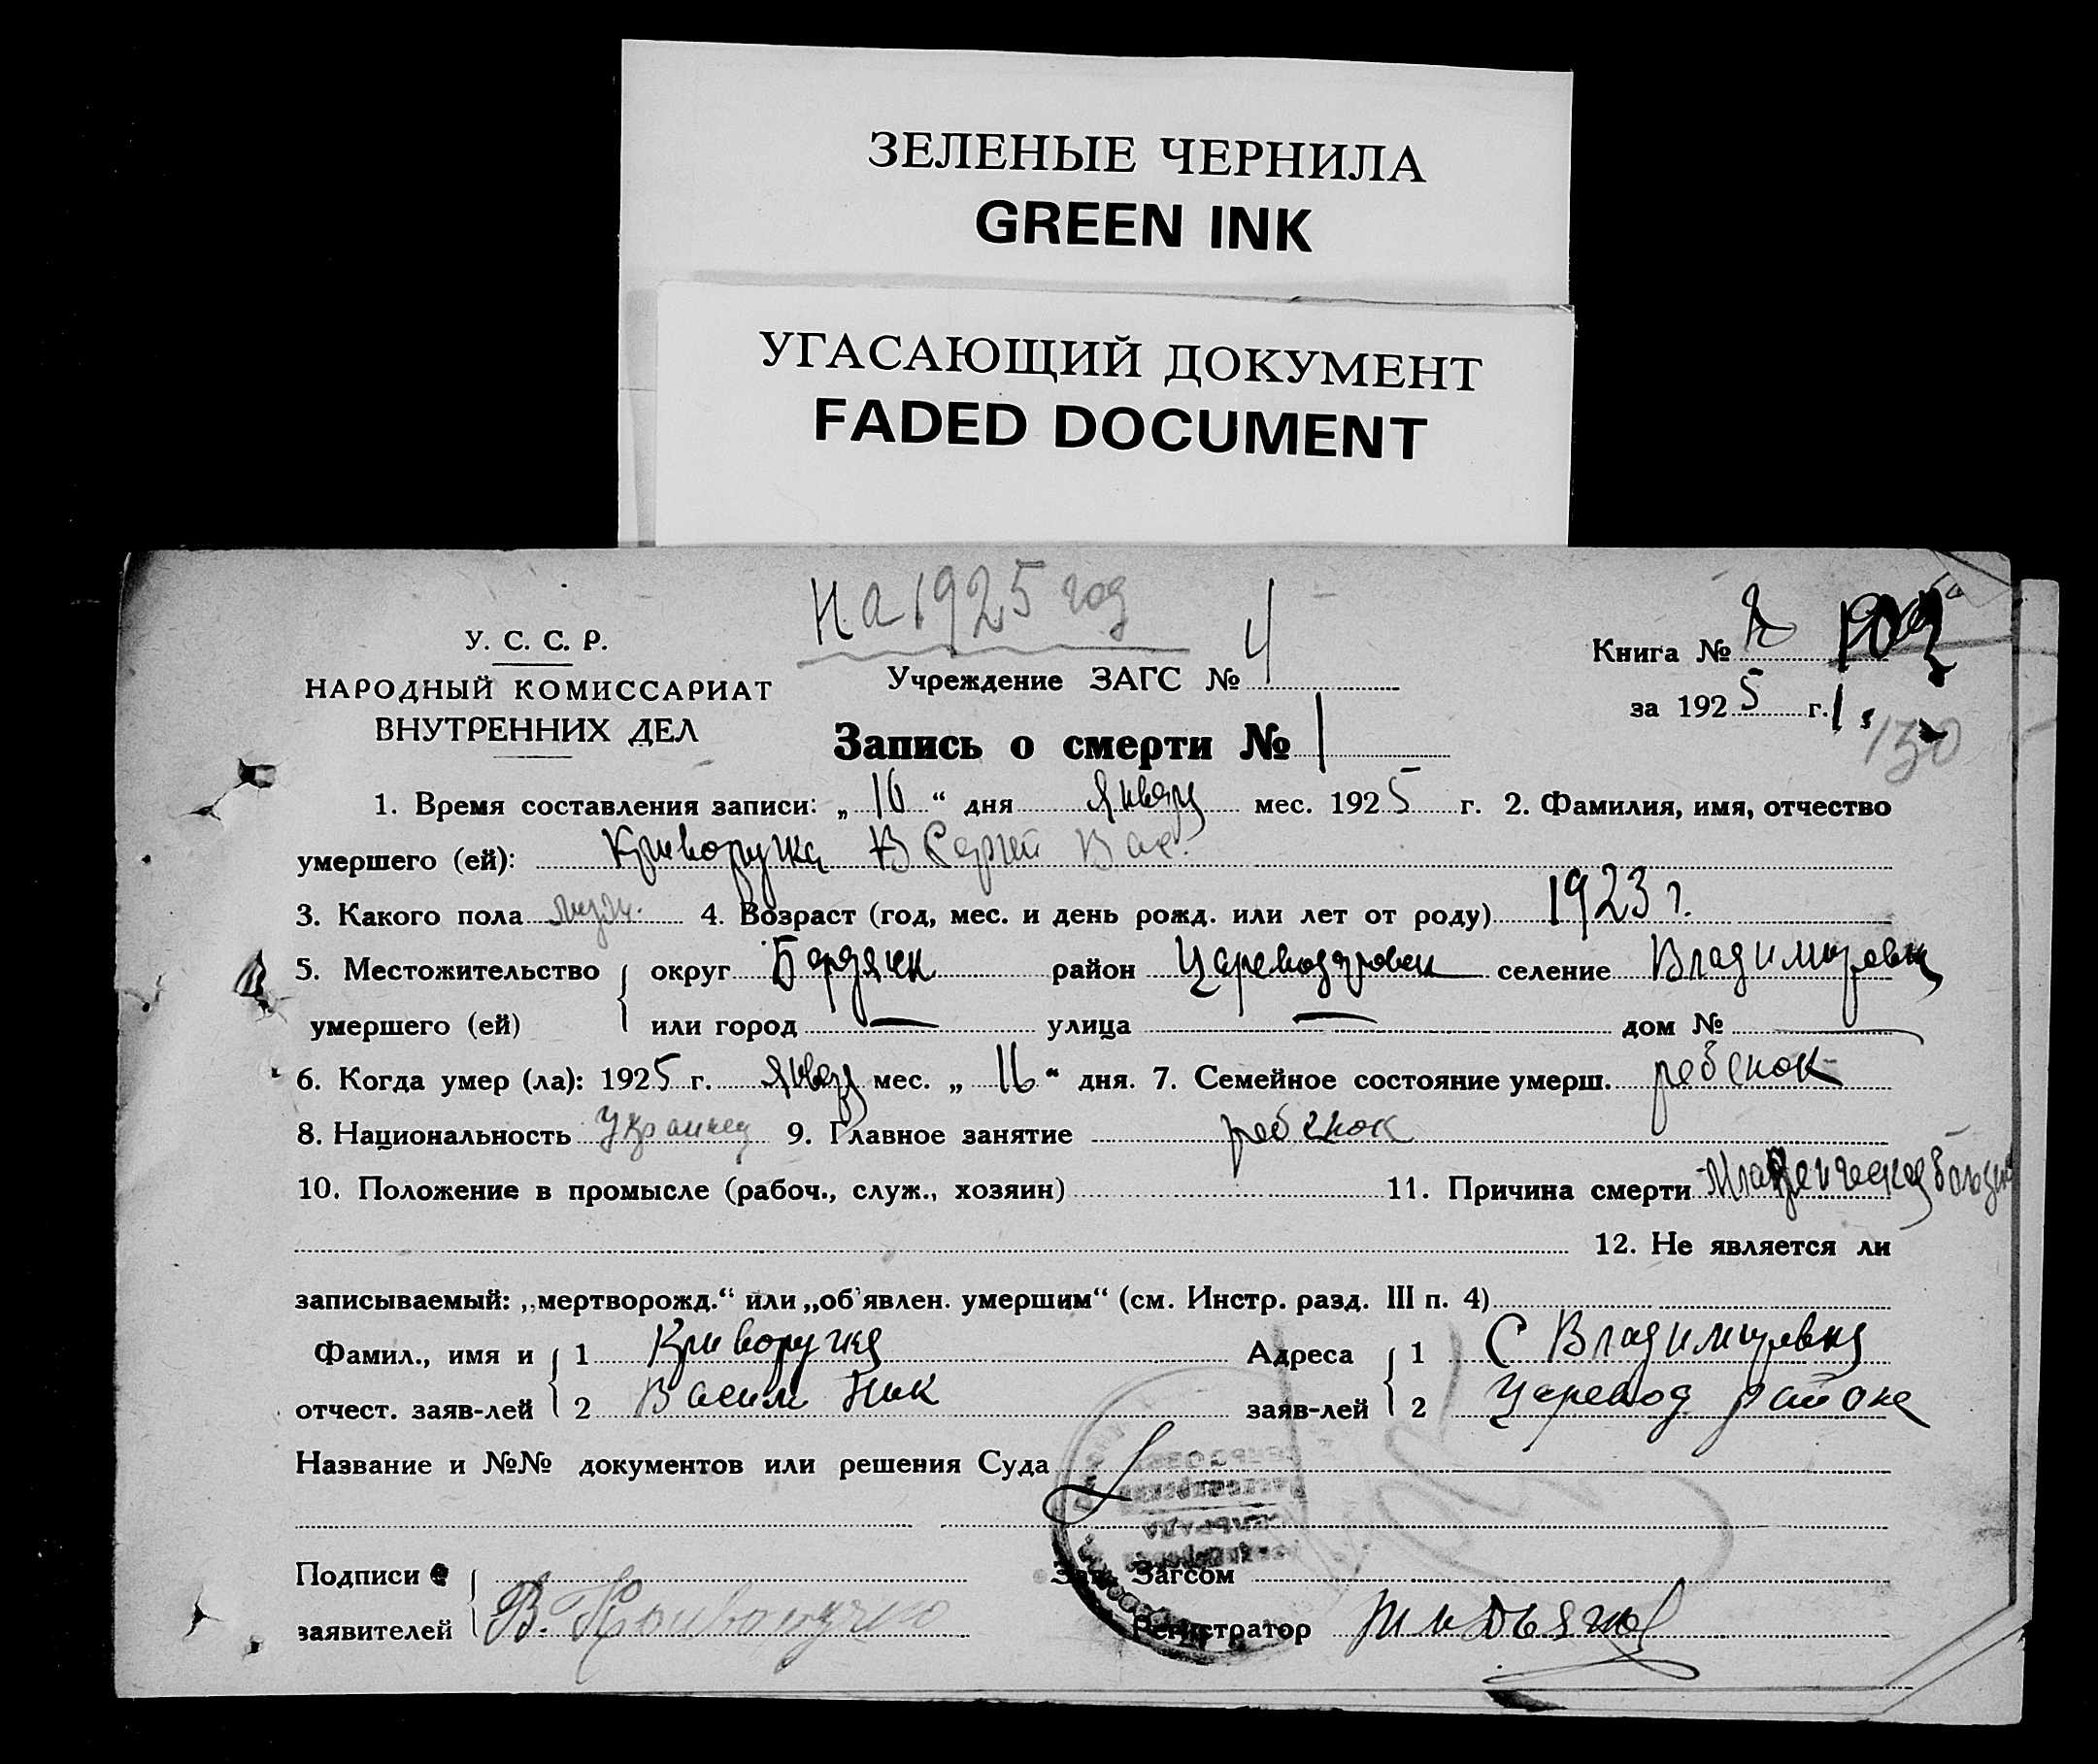 ЗЕЛЕНЫЕ ЧЕРНИЛА
GREEN INK
УГАСАЮЩИЙ ДОКУМЕНТ
FADED DOCUMENT
На 1925 год
У. С. С. Р.
НАРОДНЫЙ КОМИССАРИАТ
ВНУТРЕННИХ ДЕЛ
Учреждение ЗАГС № 4
Запись о смерти № 1
Книга №
за 1925 г.
130
1. Время составления записи: „16“ дня январ мес. 1925 г. 2. Фамилия, имя, отчество
умершего (ей): Криворучка Сергей Вас.
3. Какого пола муж. 4. Возраст (год, мес. и день рожд. или лет от роду) 1923 г.
5. Местожительство округ Бердянск район Царевод селение Владимировка
умершего (ей) или город — улица — дом № —
6. Когда умер (ла): 1925 г. январ мес. „16“ дня. 7. Семейное состояние умерш. ребенок
8. Национальность Украинец 9. Главное занятие ребенок
10. Положение в промысле (рабоч., служ., хозяин) 11. Причина смерти Младенческая
12. Не является ли
записываемый: „мертворожд.“ или „об'явлен. умершим“ (см. Инстр. разд. III п. 4)
Фамил., имя и 1 Криворучка Адреса 1 С Владимировка
отчест. заяв-лей 2 Васил Ник заяв-лей 2 Царевод района
Название и №№ документов или решения Суда
Подписи Зав. Загсом
заявителей В. Криворучко Регистратор